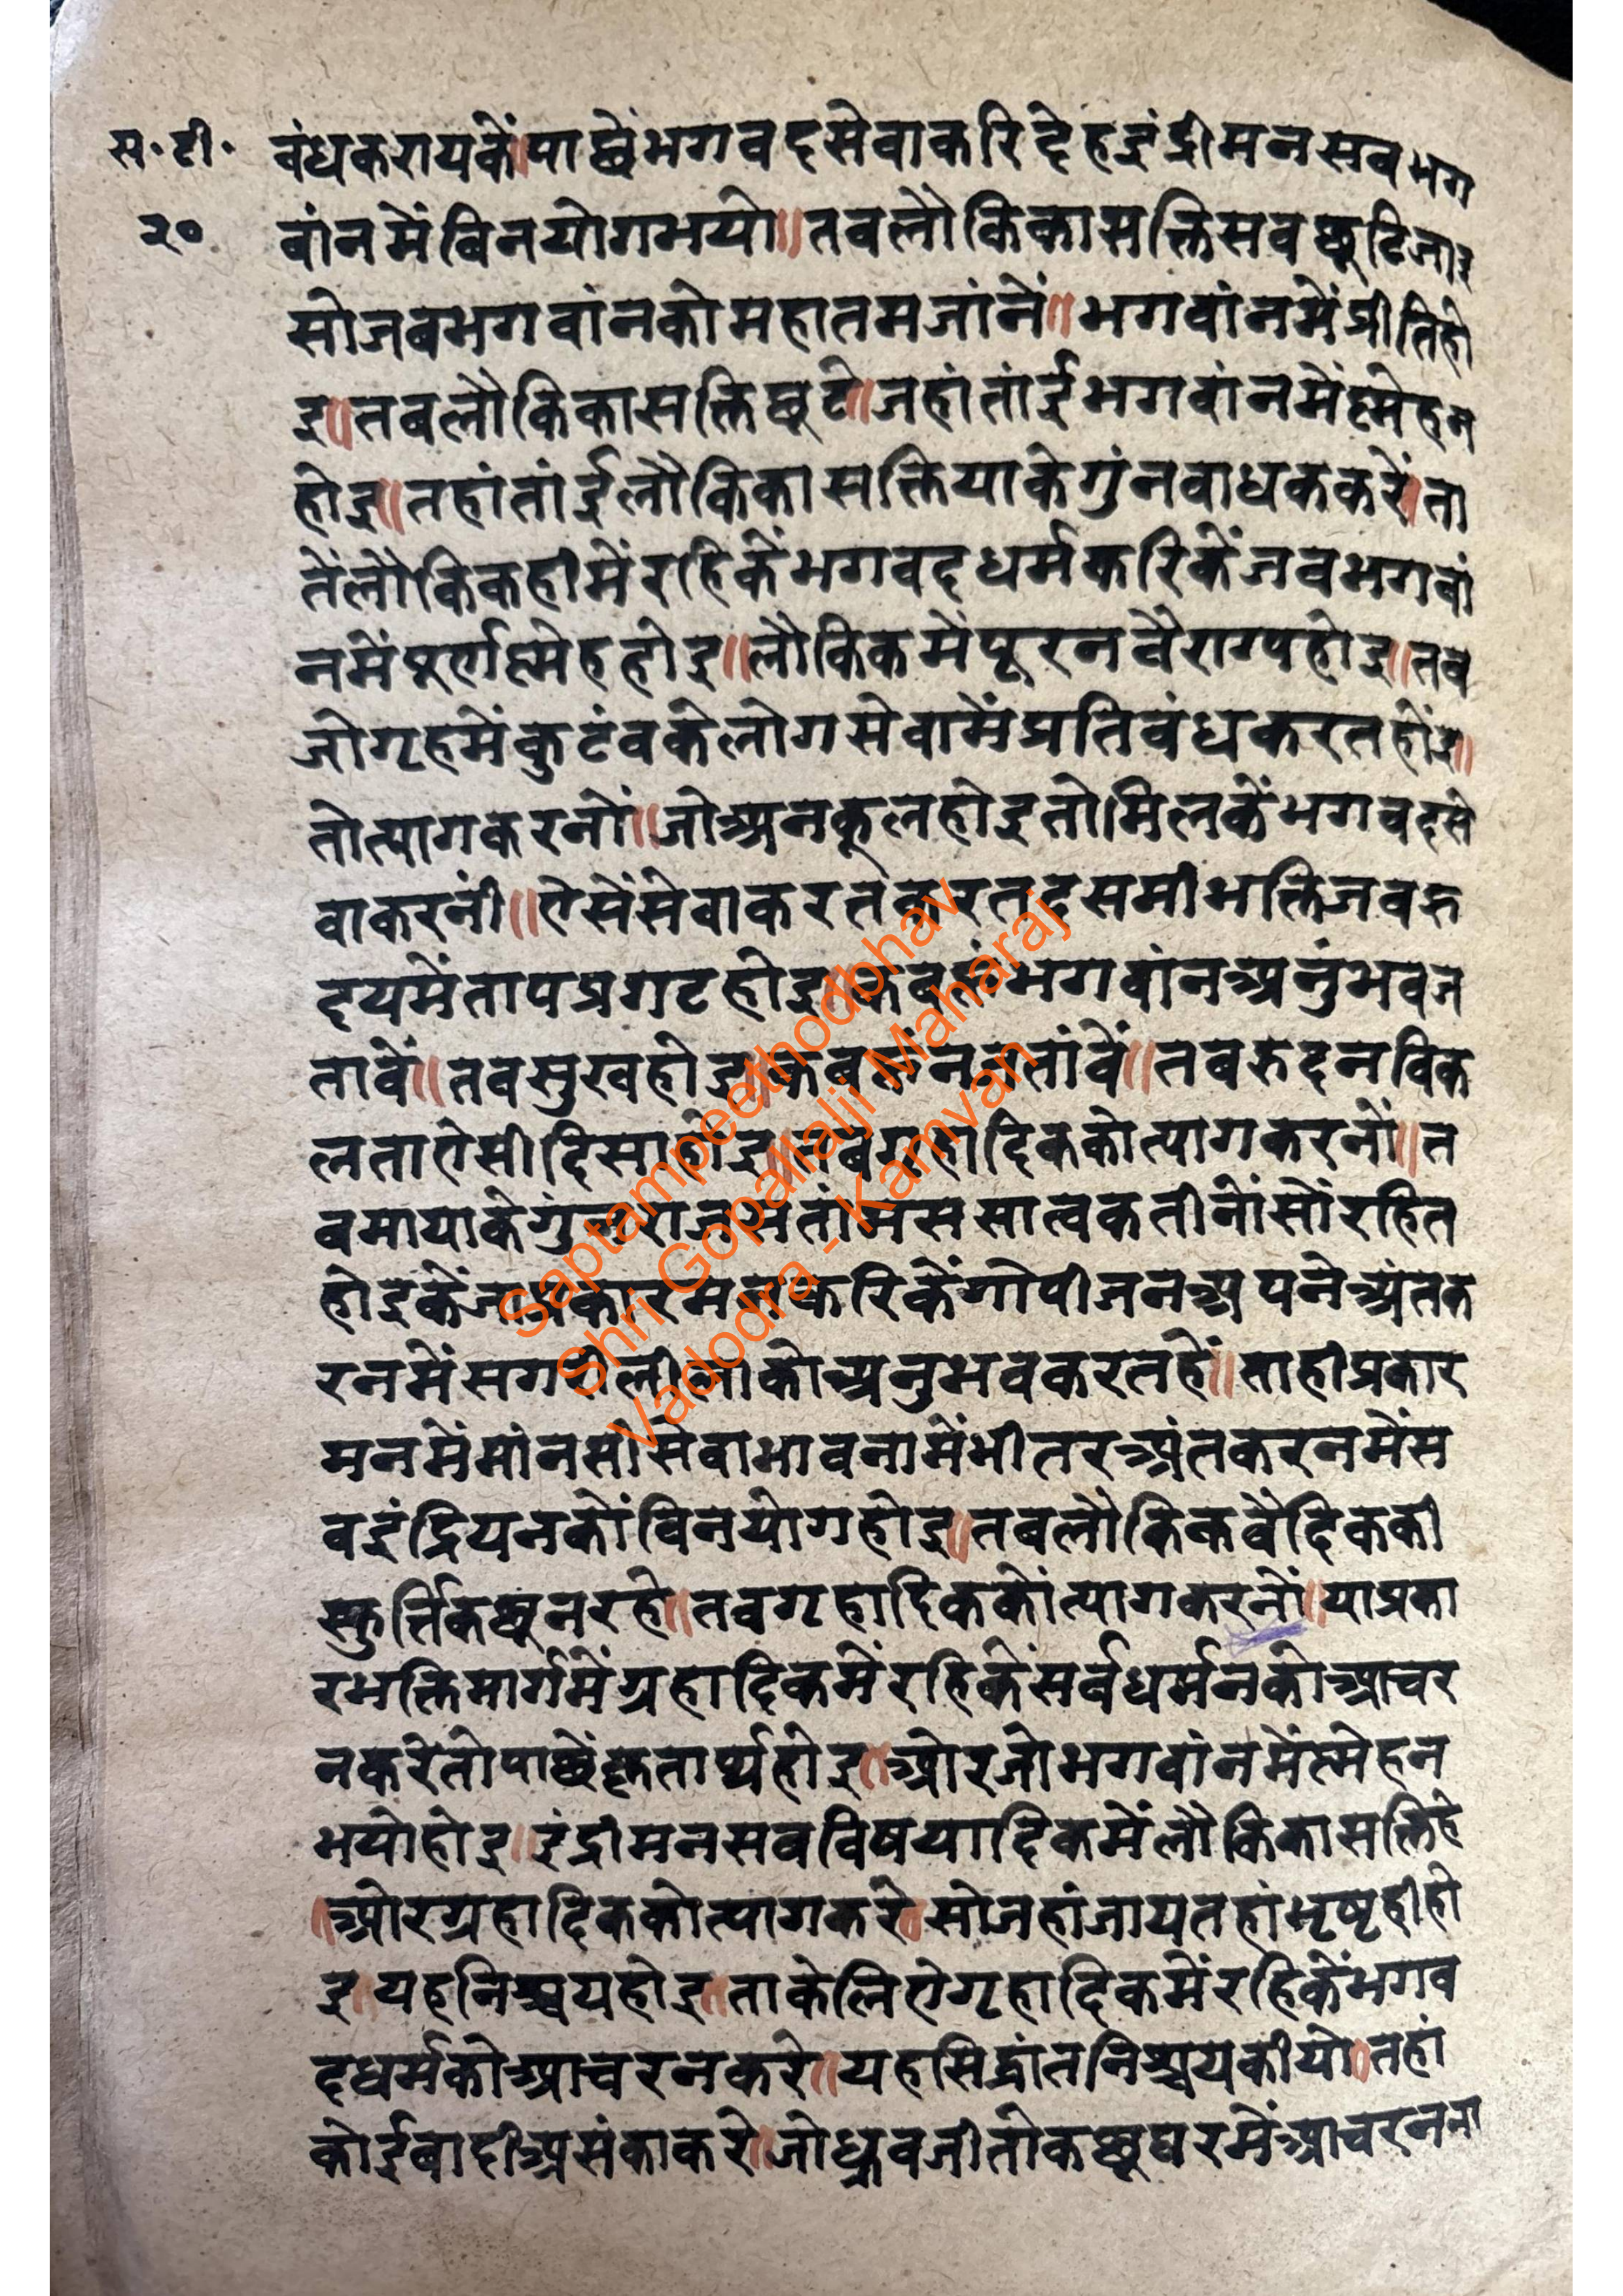 स॰टी॰
२०
बंधकरायकें।पाछेंभगवदसेवाकरिदेहइंद्रीमनसबभग
वांनमेंविनयोगभयो॥तबलौकिकासक्तिसबछूटिजाइ
सोजबभगवांनकोमहातमजांनें॥भगवांनमेंप्रीतिहो
इ॥तबलौकिकासक्तिछूटे॥जहांतांईभगवांनमेंस्नेहन
होइ॥तहांतांईलौकिकासक्तियाकेगुंनबाधककरें।ता
तेंलौकिकहीमेंरहिकेंभगवदधर्मकरिकेंजबभगवां
नमेंपूर्णस्नेहहोइ॥लौकिकमेंपूरनवैराग्यहोइ॥तब
जोगृहमेंकुटंबकेलोगसेवामेंप्रतिबंधकरतहोंइ॥
तोत्यागकरनों॥जोअनकूलहोइतोमिलकेंभगवदसे
वाकरनीं॥ऐसेंसेवाकरतकरतदसमीभक्तिजबहृ
दयमेंतापप्रगटहोइ॥कबहूंभगवांनअनुंभवज
तावें॥तबसुखहोइ॥कबहूंनजतांवें॥तबरुदनविक
लताऐसीदिसाहोइ॥तबगृहादिककोत्यागकरनों॥त
बमायाकेगुंनराजसतांमससात्वकतीनोंसोंरहित
होइकेंजाप्रकारमनकरिकेंगोपीजनअपनेअंतक
रनमेंसगरीलीलाकोअनुभवकरतहें॥ताहीप्रकार
मनमेंमांनसीसेवाभावनामेंभीतरअंतकरनमेंस
बइंद्रियनकोंविनयोगहोइ॥तबलौकिकवैदिककी
स्फुर्त्तिकछूनरहे॥तबगृहादिककोंत्यागकरनों॥याप्रका
रभक्तिमार्गमेंग्रहादिकमेंरहिकेंसर्वधर्मनकोआचर
नकरेतोपाछेंकृतार्थहोइ॥ओरजोभगवांनमेंस्नेहन
भयोहोइ॥इंद्रीमनसबविषयादिकमेंलौकिकासक्तिहे
॥ओरग्रहादिककोत्यागकरे॥सोजहांजायतहांभृष्टहीहो
इ॥यहनिश्चयहोइ॥ताकेलिऐगृहादिकमेंरहिकेंभगव
दधर्मकोआचरनकरे॥यहसिद्धांतनिश्चयकीयो॥तहां
कोईबादीअसंकाकरे॥जोध्रुवजीतोकछूघरमेंआचरनना
Saptampeethodbhav
Shri Gopallalji Maharaj
Vadodra - Kamvan